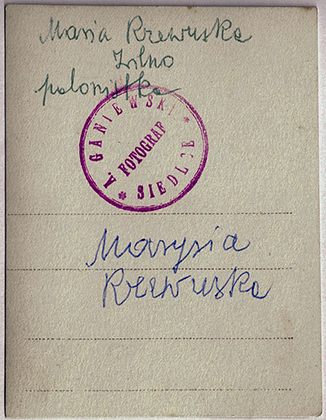 Maria Rzewuska
polonistka
A. GANIEWSKI * SIEDLCE *
FOTOGRAF
Marysia
Rzewuska